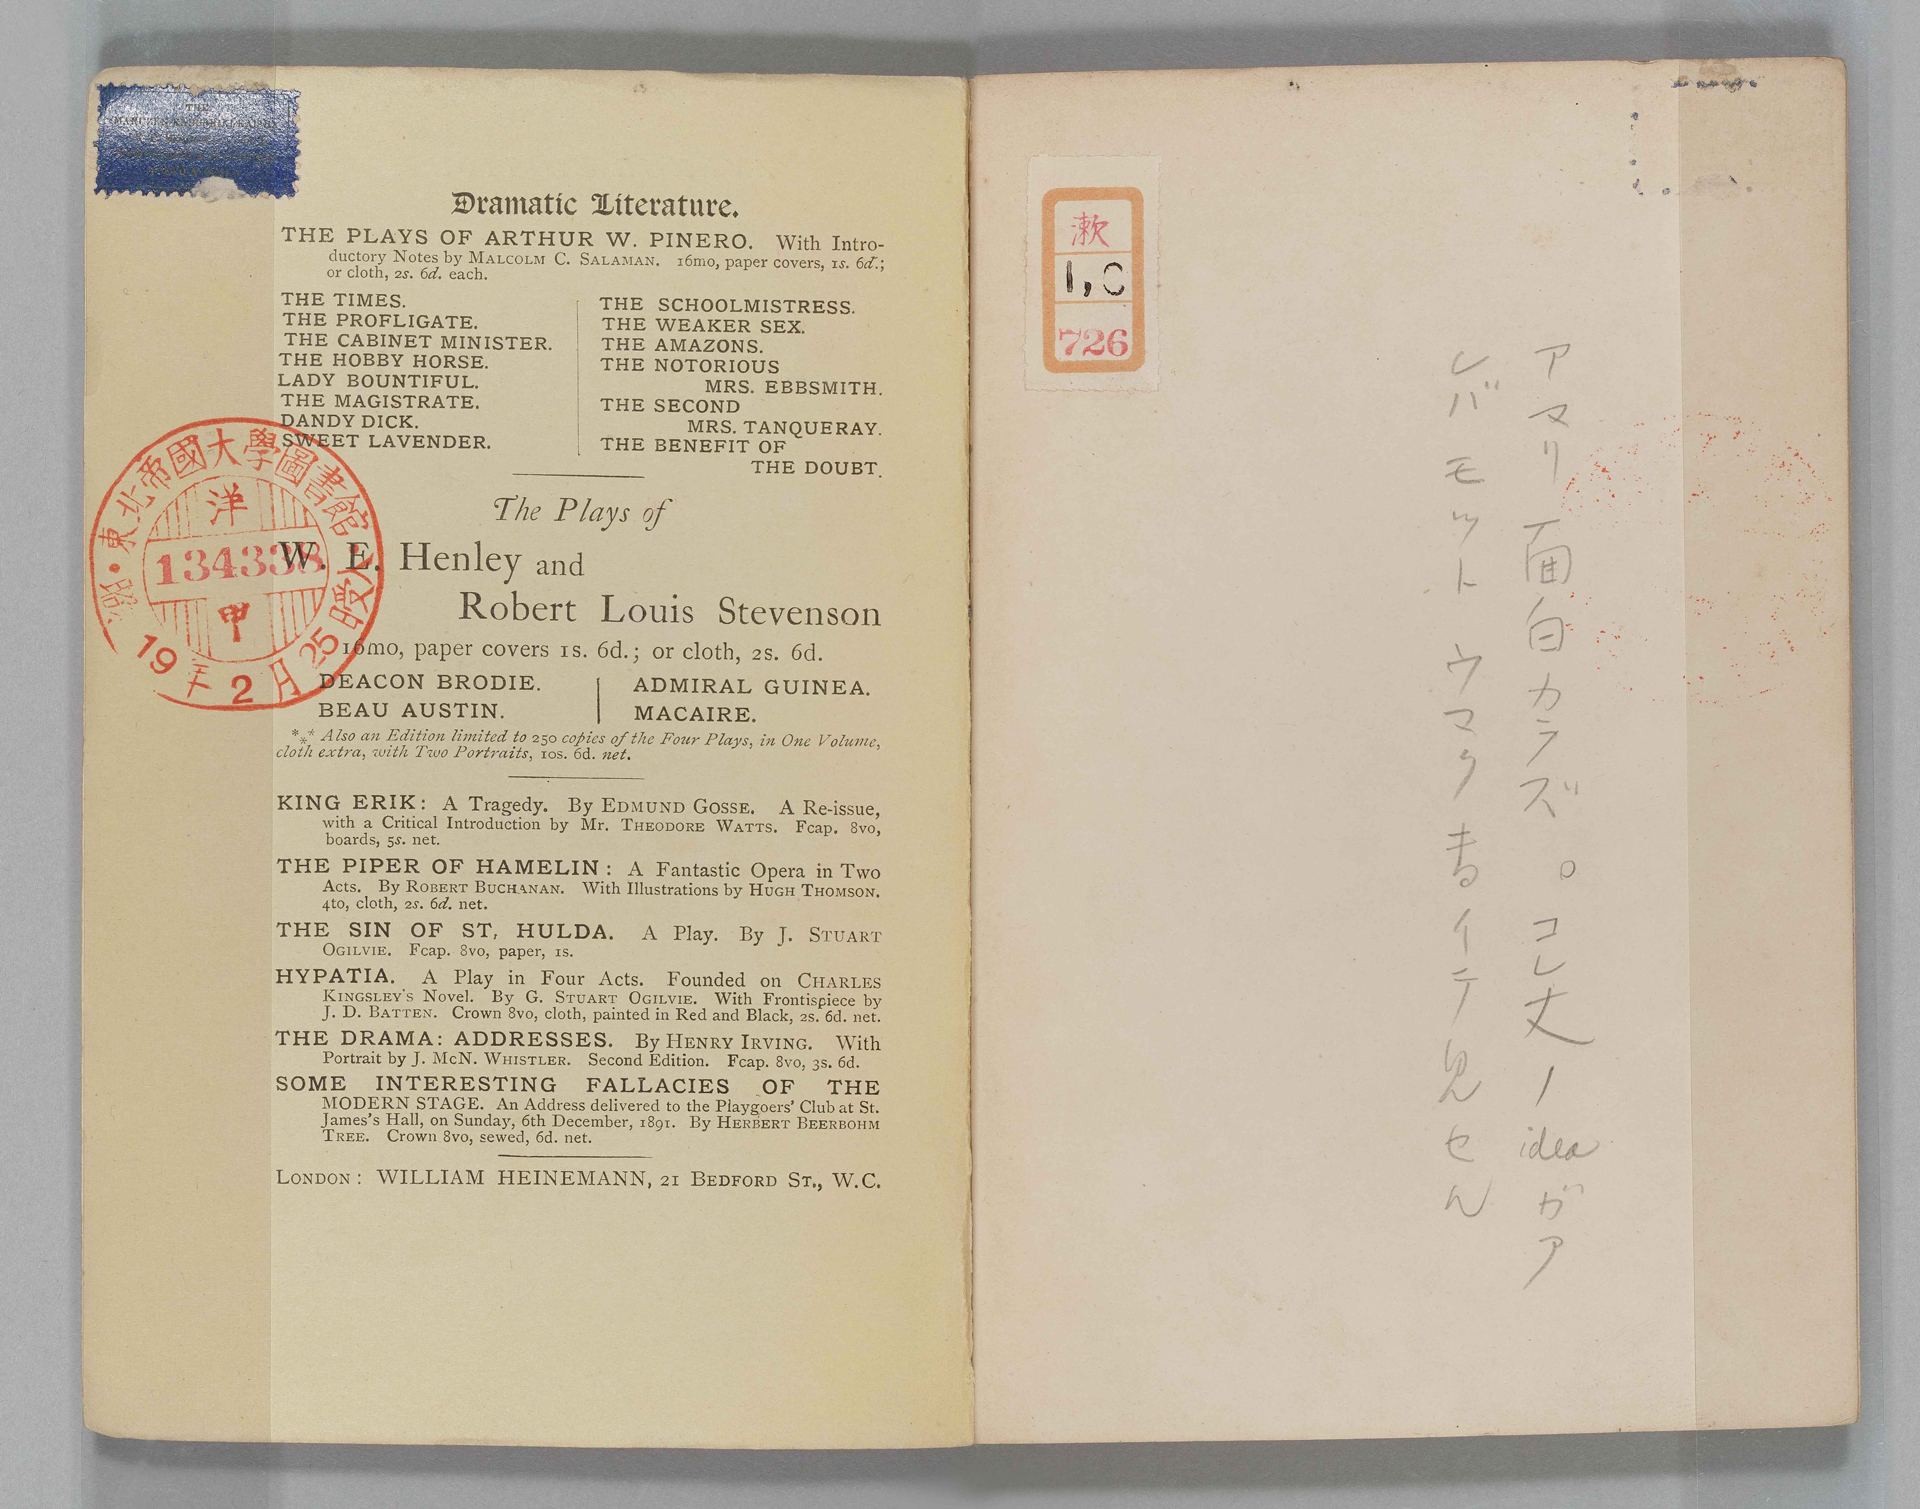 THE
Dramatic Literature.
THE PLAYS OF ARTHUR W. PINERO. With Intro-
ductory Notes by MALCOLM C. SALAMAN. 16mo, paper covers, 1s. 6d.;
or cloth, 2s. 6d. each.
THE TIMES.
THE PROFLIGATE.
THE CABINET MINISTER.
THE HOBBY HORSE.
LADY BOUNTIFUL.
THE MAGISTRATE.
DANDY DICK.
SWEET LAVENDER.
THE SCHOOLMISTRESS.
THE WEAKER SEX.
THE AMAZONS.
THE NOTORIOUS
MRS. EBBSMITH.
THE SECOND
MRS. TANQUERAY.
THE BENEFIT OF
THE DOUBT.
The Plays of
W. E. Henley and
Robert Louis Stevenson
16mo, paper covers 1s. 6d.; or cloth, 2s. 6d.
DEACON BRODIE.
BEAU AUSTIN.
ADMIRAL GUINEA.
MACAIRE.
*** Also an Edition limited to 250 copies of the Four Plays, in One Volume,
cloth extra, with Two Portraits, 10s. 6d. net.
KING ERIK: A Tragedy. By EDMUND GOSSE. A Re-issue,
with a Critical Introduction by Mr. THEODORE WATTS. Fcap. 8vo,
boards, 5s. net.
THE PIPER OF HAMELIN: A Fantastic Opera in Two
Acts. By ROBERT BUCHANAN. With Illustrations by HUGH THOMSON.
4to, cloth, 2s. 6d. net.
THE SIN OF ST. HULDA. A Play. By J. STUART
OGILVIE. Fcap. 8vo, paper, 1s.
HYPATIA. A Play in Four Acts. Founded on CHARLES
KINGSLEY'S Novel. By G. STUART OGILVIE. With Frontispiece by
J. D. BATTEN. Crown 8vo, cloth, painted in Red and Black, 2s. 6d. net.
THE DRAMA: ADDRESSES. By HENRY IRVING. With
Portrait by J. McN. WHISTLER. Second Edition. Fcap. 8vo, 3s. 6d.
SOME INTERESTING FALLACIES OF THE
MODERN STAGE. An Address delivered to the Playgoers' Club at St.
James's Hall, on Sunday, 6th December, 1891. By HERBERT BEERBOHM
TREE. Crown 8vo, sewed, 6d. net.
LONDON: WILLIAM HEINEMANN, 21 BEDFORD ST., W.C.
東北帝國大學圖書館
洋
134338
甲
19年2月25
漱
1,C
726
アマリ面白カラズ。コレ丈ノideaガア
レバモットウマク書イテ見セん